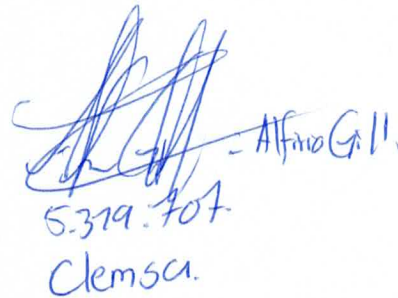 - Alfirio Gill.
5.319.707.
Clemsa.